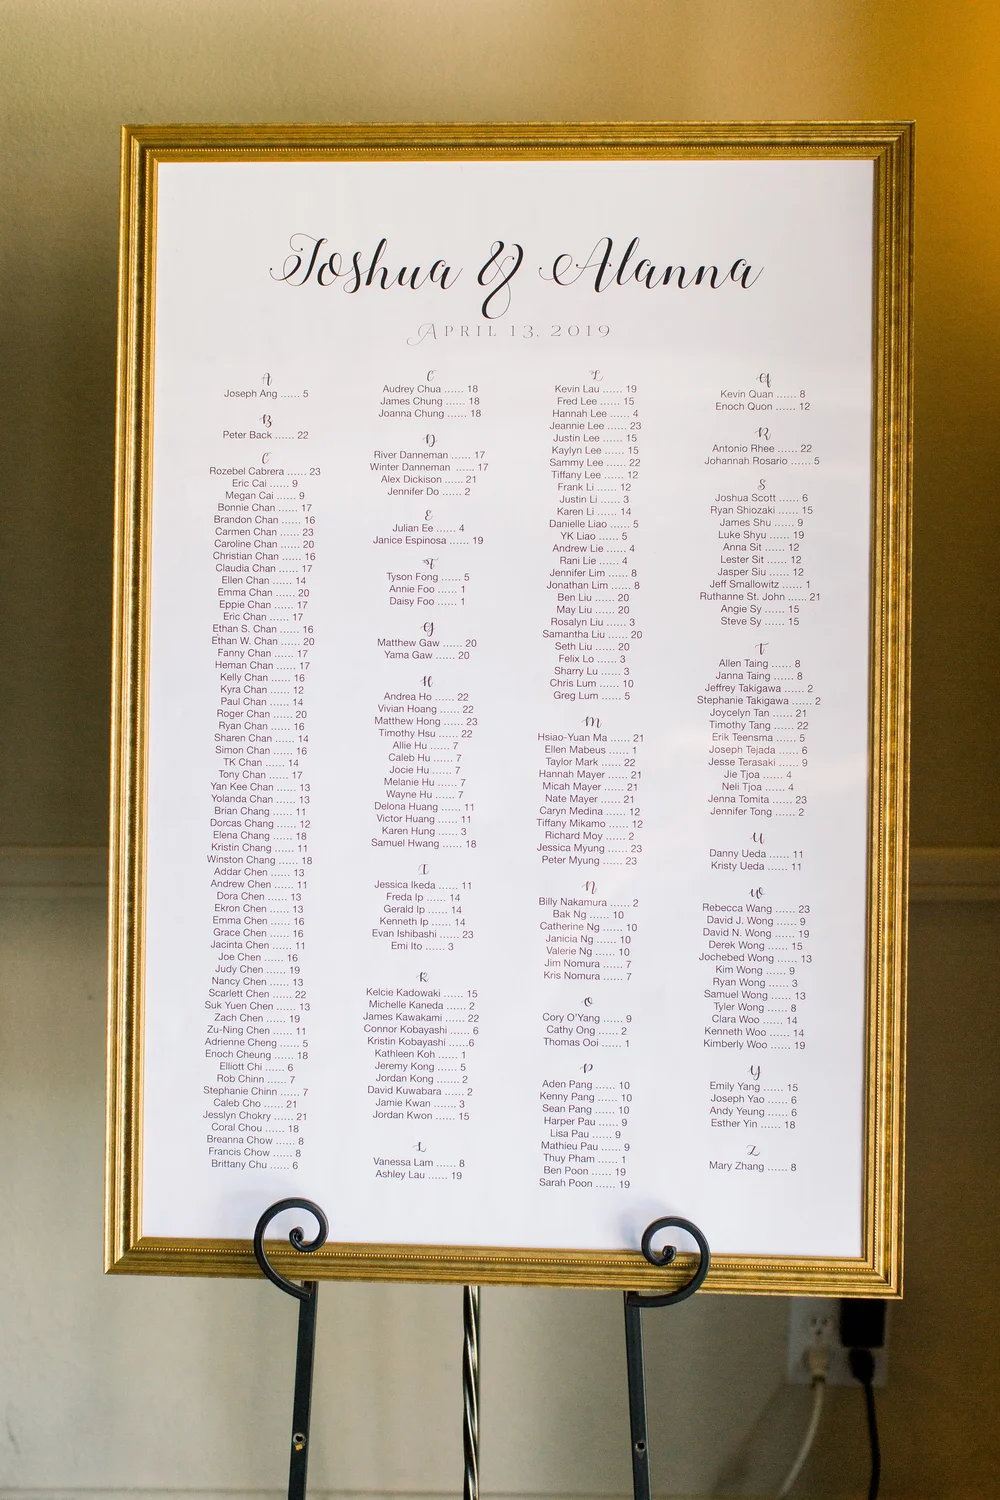 Joshua & Alanna
APRIL 13, 2019
A
Joseph Ang ...... 5
B
Peter Back ...... 22
C
Rozebel Cabrera ...... 23
Eric Cai ...... 9
Megan Cai ...... 9
Bonnie Chan ...... 17
Brandon Chan ...... 16
Carmen Chan ...... 23
Caroline Chan ...... 20
Christian Chan ...... 16
Claudia Chan ...... 17
Ellen Chan ...... 14
Emma Chan ...... 20
Eppie Chan ...... 17
Eric Chan ...... 17
Ethan S. Chan ...... 16
Ethan W. Chan ...... 20
Fanny Chan ...... 17
Heman Chan ...... 17
Kelly Chan ...... 16
Kyra Chan ...... 12
Paul Chan ...... 14
Roger Chan ...... 20
Ryan Chan ...... 16
Sharen Chan ...... 14
Simon Chan ...... 16
TK Chan ...... 14
Tony Chan ...... 17
Yan Kee Chan ...... 13
Yolanda Chan ...... 13
Brian Chang ...... 11
Dorcas Chang ...... 12
Elena Chang ...... 18
Kristin Chang ...... 11
Winston Chang ...... 18
Addar Chen ...... 13
Andrew Chen ...... 11
Dora Chen ...... 13
Ekron Chen ...... 13
Emma Chen ...... 16
Grace Chen ...... 16
Jacinta Chen ...... 11
Joe Chen ...... 16
Judy Chen ...... 19
Nancy Chen ...... 13
Scarlett Chen ...... 22
Suk Yuen Chen ...... 13
Zach Chen ...... 19
Zu-Ning Chen ...... 11
Adrienne Cheng ...... 5
Enoch Cheung ...... 18
Elliott Chi ...... 6
Rob Chinn ...... 7
Stephanie Chinn ...... 7
Caleb Cho ...... 21
Jesslyn Chokry ...... 21
Coral Chou ...... 18
Breanna Chow ...... 8
Francis Chow ...... 8
Brittany Chu ...... 6
C
Audrey Chua ...... 18
James Chung ...... 18
Joanna Chung ...... 18
D
River Danneman ...... 17
Winter Danneman ...... 17
Alex Dickison ...... 21
Jennifer Do ...... 2
E
Julian Ee ...... 4
Janice Espinosa ...... 19
F
Tyson Fong ...... 5
Annie Foo ...... 1
Daisy Foo ...... 1
G
Matthew Gaw ...... 20
Yama Gaw ...... 20
H
Andrea Ho ...... 22
Vivian Hoang ...... 22
Matthew Hong ...... 23
Timothy Hsu ...... 22
Allie Hu ...... 7
Caleb Hu ...... 7
Jocie Hu ...... 7
Melanie Hu ...... 7
Wayne Hu ...... 7
Delona Huang ...... 11
Victor Huang ...... 11
Karen Hung ...... 3
Samuel Hwang ...... 18
I
Jessica Ikeda ...... 11
Freda Ip ...... 14
Gerald Ip ...... 14
Kenneth Ip ...... 14
Evan Ishibashi ...... 23
Emi Ito ...... 3
K
Kelcie Kadowaki ...... 15
Michelle Kaneda ...... 2
James Kawakami ...... 22
Connor Kobayashi ...... 6
Kristin Kobayashi ......6
Kathleen Koh ...... 1
Jeremy Kong ...... 5
Jordan Kong ...... 2
David Kuwabara ...... 2
Jamie Kwan ...... 3
Jordan Kwon ...... 15
L
Vanessa Lam ...... 8
Ashley Lau ...... 19
L
Kevin Lau ...... 19
Fred Lee ...... 15
Hannah Lee ...... 4
Jeannie Lee ...... 23
Justin Lee ...... 15
Kaylyn Lee ...... 15
Sammy Lee ...... 22
Tiffany Lee ...... 12
Frank Li ...... 12
Justin Li ...... 3
Karen Li ...... 14
Danielle Liao ...... 5
YK Liao ...... 5
Andrew Lie ...... 4
Rani Lie ...... 4
Jennifer Lim ...... 8
Jonathan Lim ...... 8
Ben Liu ...... 20
May Liu ...... 20
Rosalyn Liu ...... 3
Samantha Liu ...... 20
Seth Liu ...... 20
Felix Lo ...... 3
Sharry Lu ...... 3
Chris Lum ...... 10
Greg Lum ...... 5
M
Hsiao-Yuan Ma ...... 21
Ellen Mabeus ...... 1
Taylor Mark ...... 22
Hannah Mayer ...... 21
Micah Mayer ...... 21
Nate Mayer ...... 21
Caryn Medina ...... 12
Tiffany Mikamo ...... 12
Richard Moy ...... 2
Jessica Myung ...... 23
Peter Myung ...... 23
N
Billy Nakamura ...... 2
Bak Ng ...... 10
Catherine Ng ...... 10
Janicia Ng ...... 10
Valerie Ng ...... 10
Jim Nomura ...... 7
Kris Nomura ...... 7
O
Cory O'Yang ...... 9
Cathy Ong ...... 2
Thomas Ooi ...... 1
P
Aden Pang ...... 10
Kenny Pang ...... 10
Sean Pang ...... 10
Harper Pau ...... 9
Lisa Pau ...... 9
Mathieu Pau ...... 9
Thuy Pham ...... 1
Ben Poon ...... 19
Sarah Poon ...... 19
Q
Kevin Quan ...... 8
Enoch Quon ...... 12
R
Antonio Rhee ...... 22
Johannah Rosario ...... 5
S
Joshua Scott ...... 6
Ryan Shiozaki ...... 15
James Shu ...... 9
Luke Shyu ...... 19
Anna Sit ...... 12
Lester Sit ...... 12
Jasper Siu ...... 12
Jeff Smallowitz ...... 1
Ruthanne St. John ...... 21
Angie Sy ...... 15
Steve Sy ...... 15
T
Allen Taing ...... 8
Janna Taing ...... 8
Jeffrey Takigawa ...... 2
Stephanie Takigawa ...... 2
Joycelyn Tan ...... 21
Timothy Tang ...... 22
Erik Teensma ...... 5
Joseph Tejada ...... 6
Jesse Terasaki ...... 9
Jie Tjoa ...... 4
Neli Tjoa ...... 4
Jenna Tomita ...... 23
Jennifer Tong ...... 2
U
Danny Ueda ...... 11
Kristy Ueda ...... 11
W
Rebecca Wang ...... 23
David J. Wong ...... 9
David N. Wong ...... 19
Derek Wong ...... 15
Jochebed Wong ...... 13
Kim Wong ...... 9
Ryan Wong ...... 3
Samuel Wong ...... 13
Tyler Wong ...... 8
Clara Woo ...... 14
Kenneth Woo ...... 14
Kimberly Woo ...... 19
Y
Emily Yang ...... 15
Joseph Yao ...... 6
Andy Yeung ...... 6
Esther Yin ...... 18
Z
Mary Zhang ...... 8